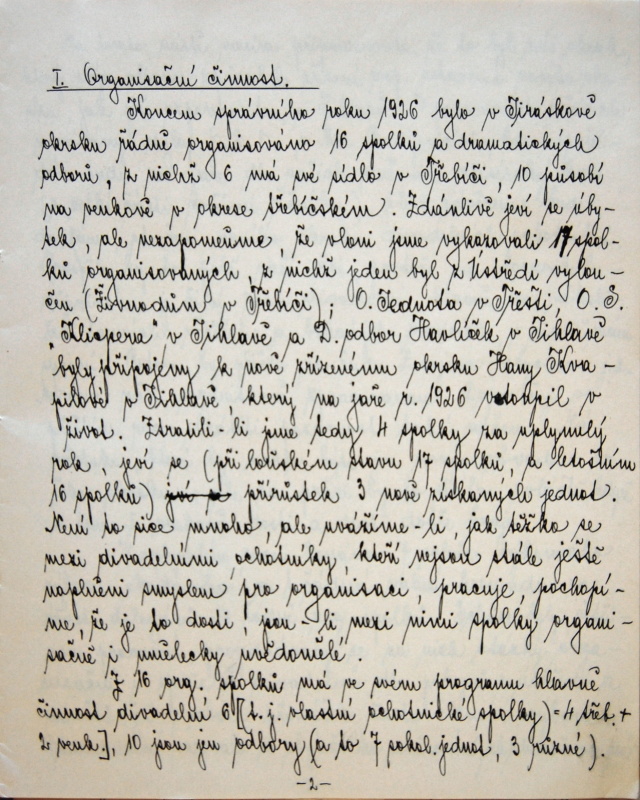 I. Organisační činnost.
Koncem správního roku 1926 bylo v Jiráskově
okrsku řádně organisováno 16 spolků a dramatických
odborů, z nichž 6 má své sídlo v Třebíči, 10 působí
na venkově v okrese třebíčském. Zdánlivě jeví se úby-
tek, ale nezapomeňme, že vloni jsme vykazovali 17 spol-
ků organisovaných, z nichž jeden byl z Ústředí vylou-
čen (Živnodům v Třebíči); O. Jednota v Třešti, O. S.
"Klicpera" v Jihlavě a D. odbor Havlíček v Jihlavě
byly připojeny k nově zřízenému okrsku Hany Kva-
pilové v Jihlavě, který na jaře r. 1926 vstoupil v
život. Ztratili-li jsme tedy 4 spolky za uplynulý
rok, jeví se (při loňském stavu 17 spolků, a letošním
16 spolků) jeví se přírůstek 3 nově získaných jednot.
Není to sice mnoho, ale uvážíme-li, jak těžko se
mezi divadelními ochotníky, kteří nejsou stále ještě
naplněni smyslem pro organisaci, pracuje, pochopí-
me, že je to dosti, jsou-li mezi nimi spolky organi-
sačně i umělecky uvědomělé.
Z 16 org. spolků má ve svém programu hlavně
činnost divadelní 6 [t. j. vlastní ochotnické spolky) = 4 třeb. +
2 venk.], 10 jsou jen odbory (a to 7 sokol. jednot, 3 různé).
-2-